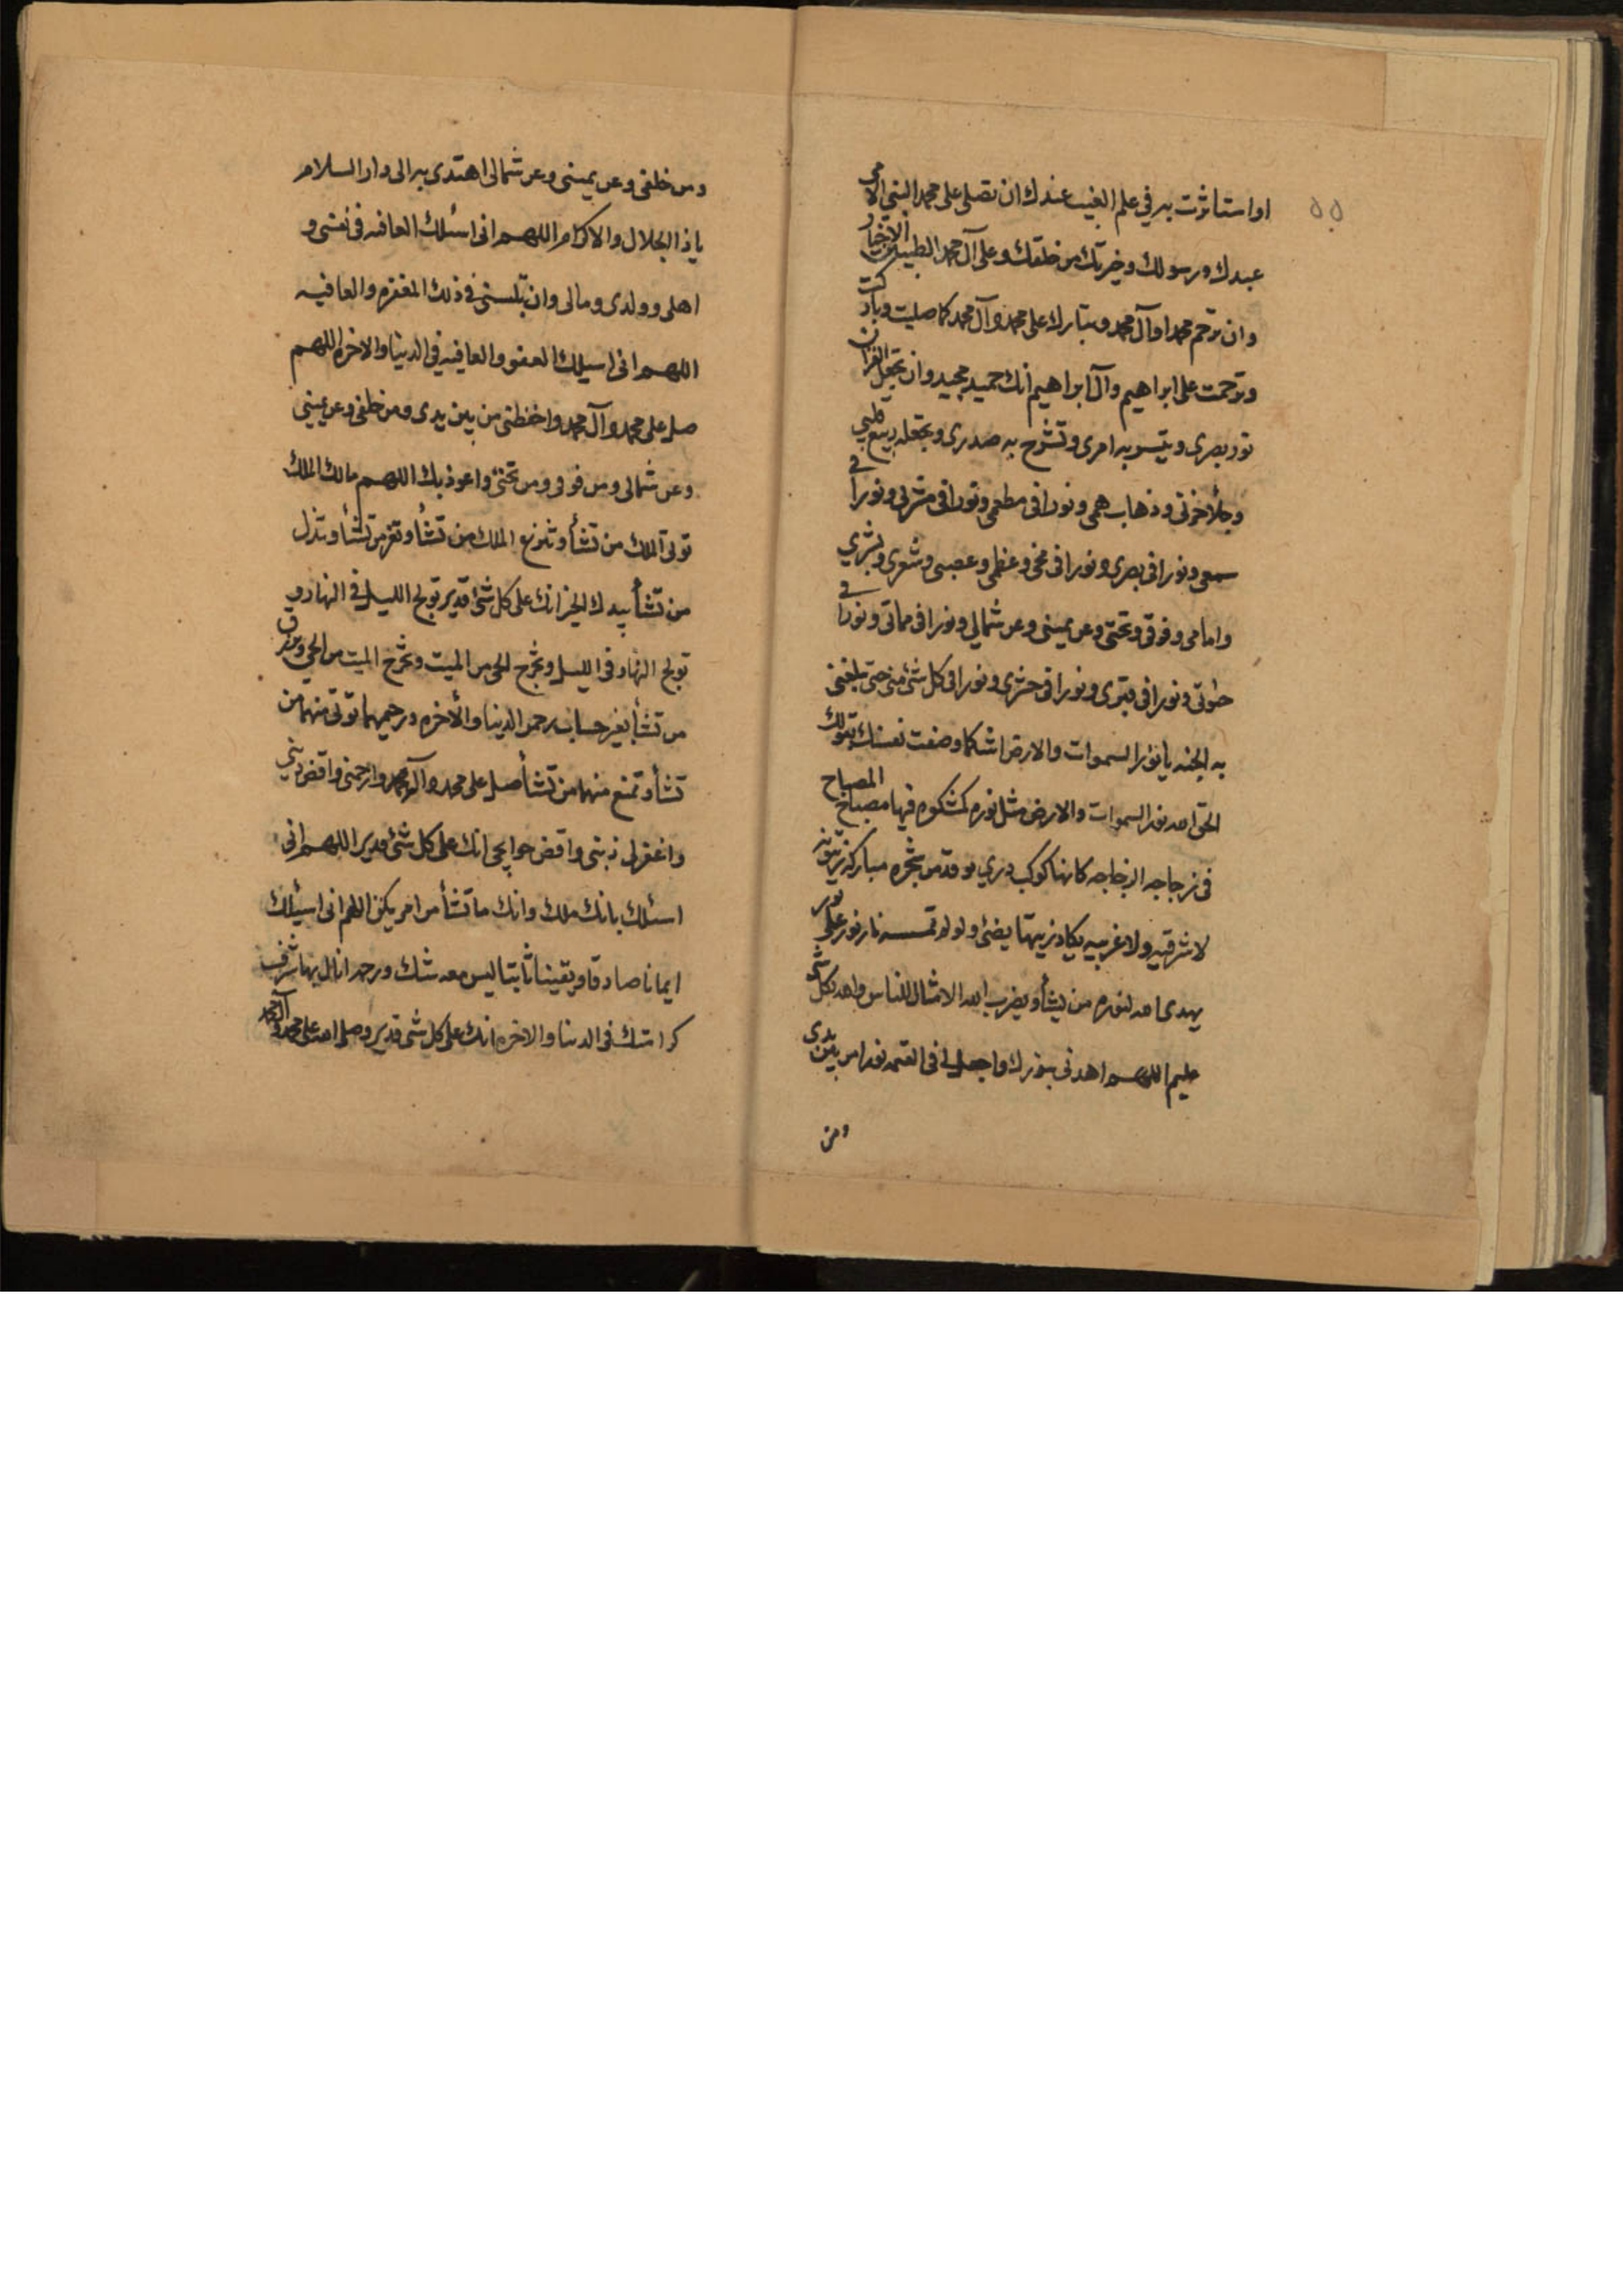 ٥٥
او استاثرت به في علم الغيب عندك ان تصلي على محمد النبي الامي
عبدك ورسولك وخيرتك من خلقك وعلى آل محمد الطيبين الاخيار
وان ترحم محمدا وآل محمد وتبارك على محمد وآل محمد كما صليت وباركت
وترحمت على ابراهيم وآل ابراهيم انك حميد مجيد وان تجعل القرآن
نور بصرى وتيسر به امرى وتشرح به صدرى وتجعله ربيع قلبي
وجلأ حزني وذهاب همي ونورا فى مطعمي ونورا فى مشربي ونورا في
سمعي ونورا فى بصرى ونورا فى مخي وعظمي وعصبي وشعرى وبشري
وامامي وفوقي وتحتي وعن يميني وعن شمالي ونورا فى مماتي ونورا في
حيوتي ونورا فى قبرى ونورا فى حشرى ونورا فى كل شئ مني حتى تبلغني
به الجنه يا نور السموات والارض انت كما وصفت نفسك بقولك
الحق الله نور السموات والارض مثل نوره كمشكوه فيها مصباح المصباح
فى زجاجه الزجاجه كانها كوكب دري يوقد من شجره مباركه زيتونه
لا شرقيه ولا غربيه يكاد زيتها يضئ ولو لم تمسسه نار نور على نور
يهدى الله لنوره من يشأ ويضرب الله الامثال للناس والله بكل شئ
عليم اللهم اهدني بنورك واجعل لي فى القيمه نورا من بين يدى
ومن
ومن خلفي وعن يميني وعن شمالى اهتدى به الى دار السلام
يا ذا الجلال والاكرام اللهم انى اسئلك العافيه فى نفسي و
اهلى وولدى ومالى وان تلبسني في ذلك المغفره والعافيه
اللهم انى اسيلك العفو والعافيه في الدينا والاخره اللهم
صل على محمد وآل محمد واحفظني من بين يدى ومن خلفي وعن يميني
وعن شمالى ومن فوقي ومن تحتي واعوذ بك اللهم مالك الملك
توتي الملك من تشأ وتنزع الملك من تشأ وتعز من تشأ وتذل
من تشأ بيدك الخير انك على كل شئ قدير تولج الليل في النهار و
تولج النهار فى الليل وتخرج الحى من الميت وتخرج الميت من الحي وترزق
من تشأ بغير حساب رحمن الدينا والأخره ورحيمهما توتي منهما من
تشأ وتمنع منهما من تشأ صل على محمد وآل محمد وارحمني واقض ديني
واغفر لى ذنبي واقض حوايجي انك على كل شئ قدير اللهم انى
اسئلك بانك ملك وانك ما تشأ من امر يكن اللهم انى اسيئلك
ايمانا صادقا ويقينا ثابتا ليس معه شك ورحمه انال بها شرف
كرامتك فى الدنيا والاخره انك على كل شى قدير وصلى الله على محمد وآل محمد